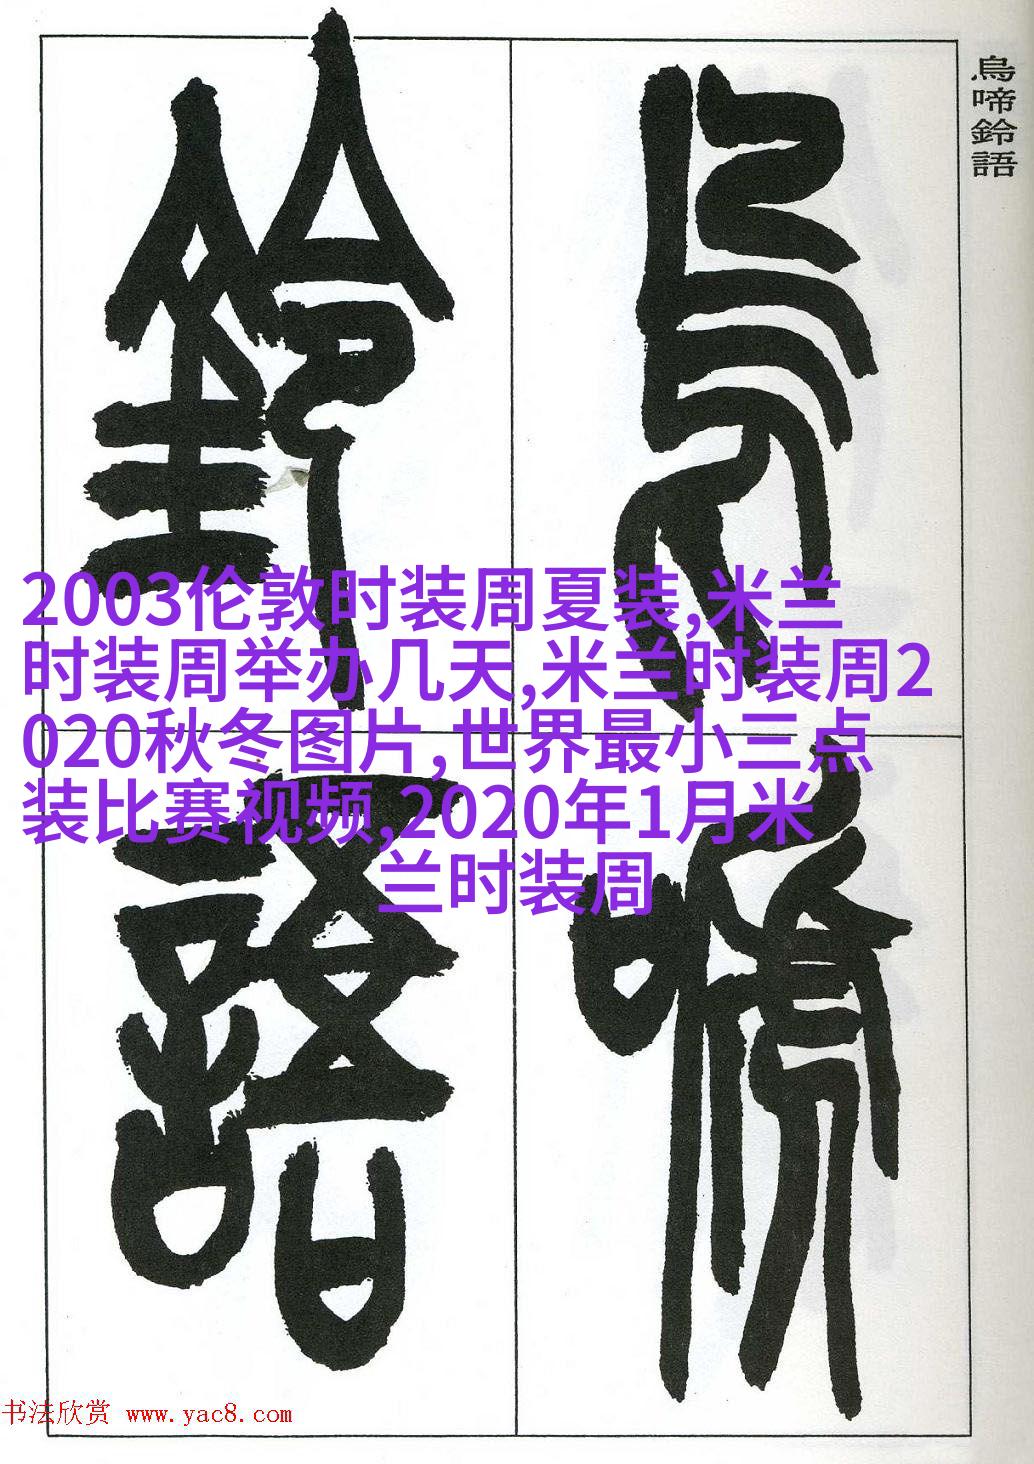 烏啼鈴語
烏啼
鈴語
2003伦敦时装周夏装,米兰
时装周举办几天,米兰时装周2
020秋冬图片,世界最小三点
装比赛视频,2020年1月米
兰时装周
书法欣赏 www.yac8.com